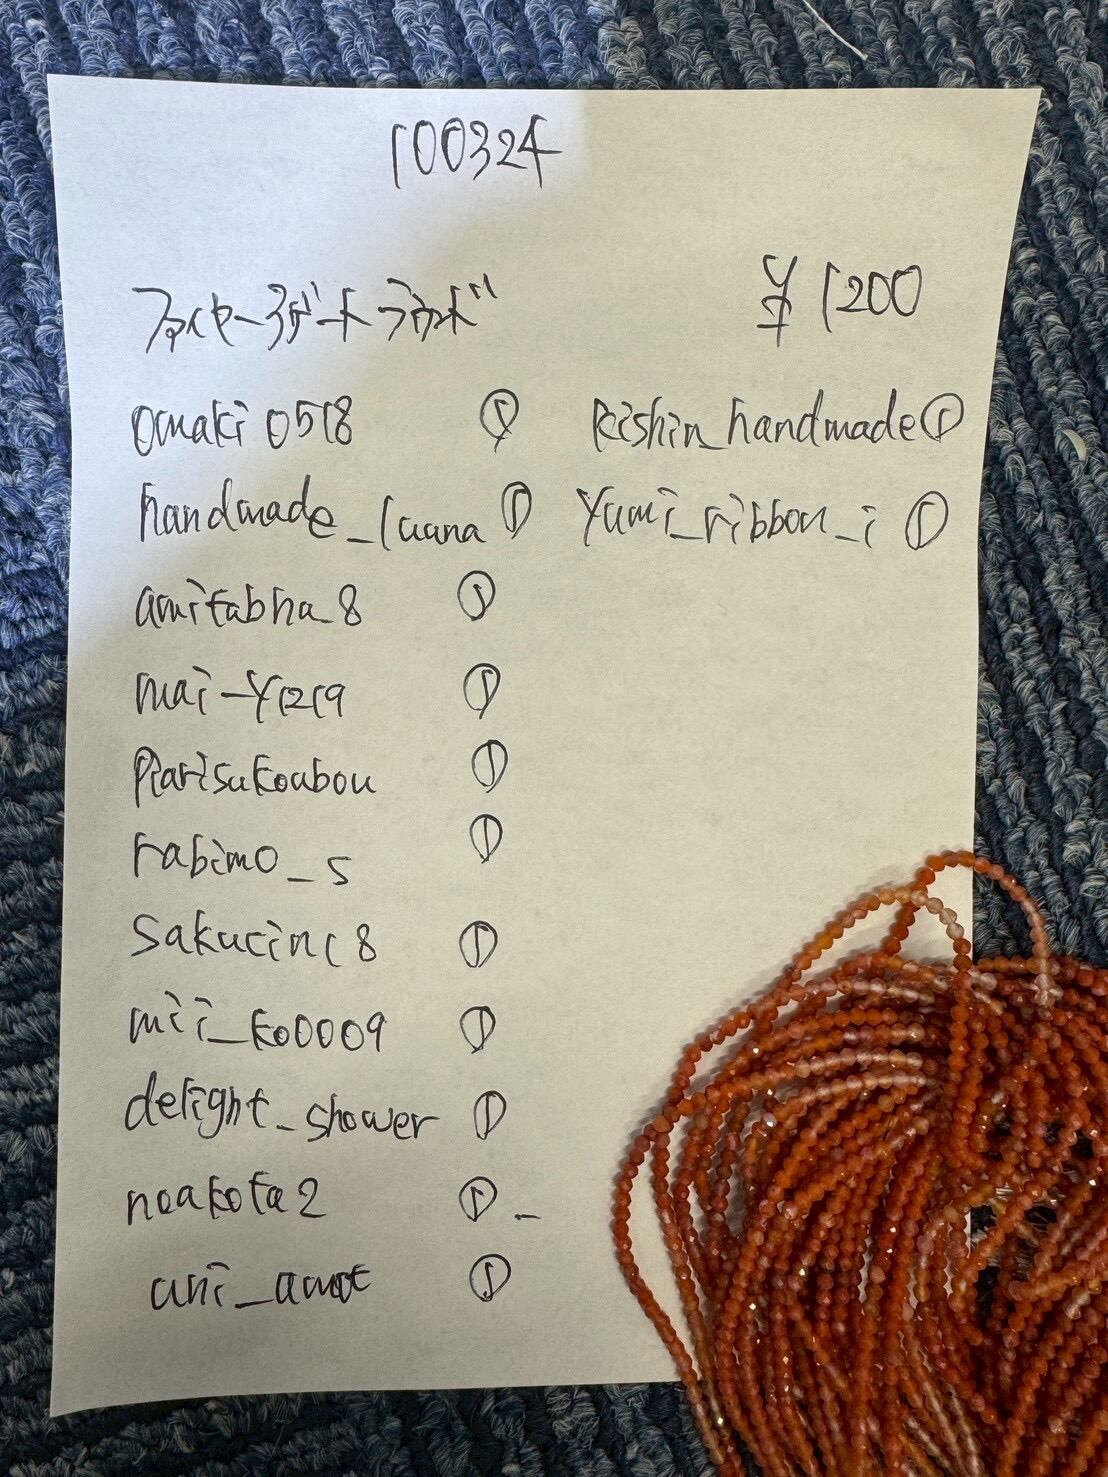 100324
ファイヤーアゲートラウンド ¥1200
omaki0518 ①
handmade_luana ①
amitabha_8 ①
mai-y1219 ①
parisukoubou ①
rabimo_s ①
sakucinc8 ①
mii_ko0009 ①
delight_shower ①
noakota2 ① _
uni_amot ①
kishin_handmade ①
yumi_ribbon_i ①